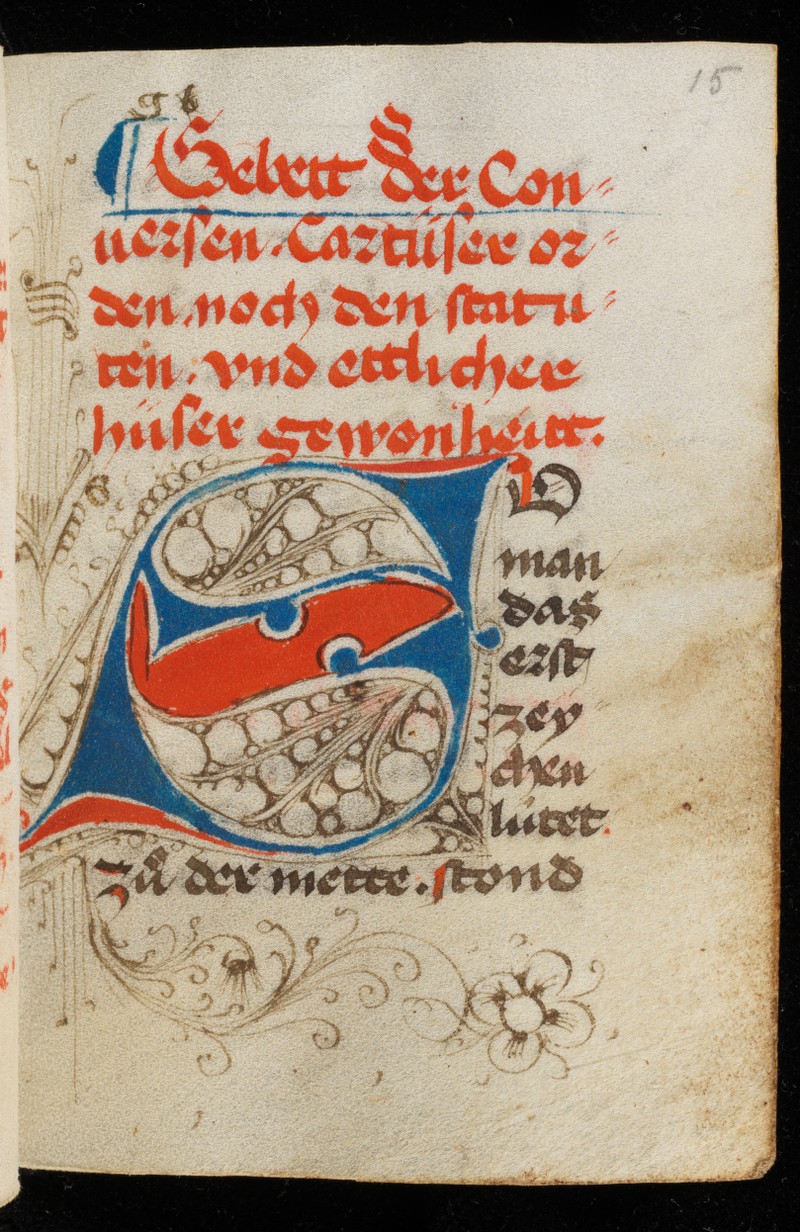 15
g b
¶ Gebett der Con=
uersen. Cartüser or=
den. noch den statu=
ten. vnd ettlicher
hüser gewonheitt.
SO
man
das
erst
zey
chen
lütet.
zů der mette. stond